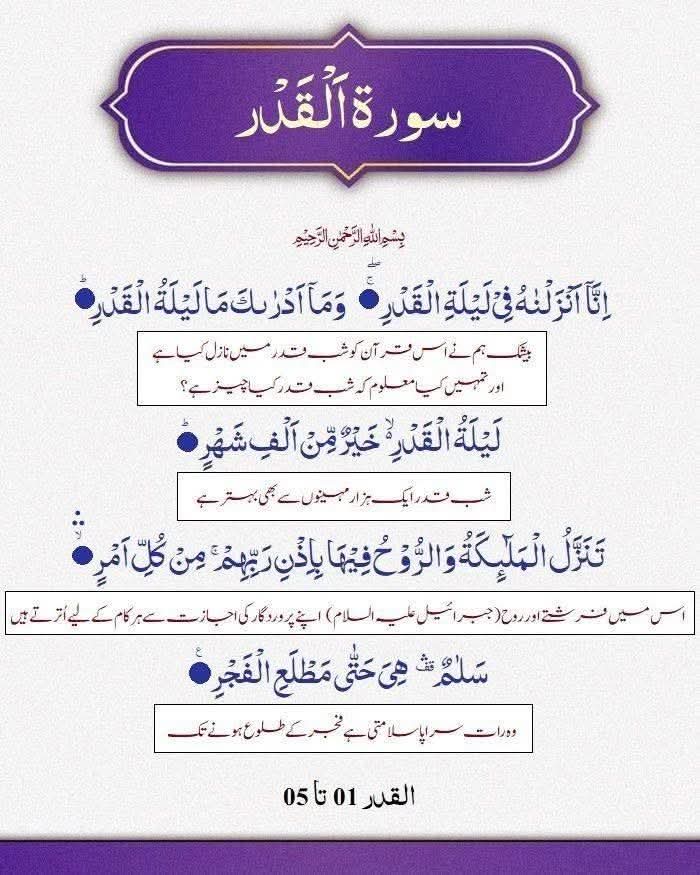 سورة اَلْقَدْر
بِسْمِ اللهِ الرَّحْمٰنِ الرَّحِيْمِ
اِنَّاۤ اَنْزَلْنٰهُ فِیْ لَیْلَةِ الْقَدْرِ ۚۖ وَمَاۤ اَدْرٰىكَ مَا لَیْلَةُ الْقَدْرِ ؕ
بیشک ہم نے اس قرآن کو شب قدر میں نازل کیا ہے
اور تمہیں کیا معلوم کہ شب قدر کیا چیز ہے؟
لَیْلَةُ الْقَدْرِ ۙ خَیْرٌ مِّنْ اَلْفِ شَهْرٍ ؕ
شب قدر ایک ہزار مہینوں سے بھی بہتر ہے
تَنَزَّلُ الْمَلٰٓىِٕكَةُ وَالرُّوْحُ فِیْهَا بِاِذْنِ رَبِّهِمْ ۚ مِنْ كُلِّ اَمْرٍ ۙۛ
اس میں فرشتے اور روح (جبرائیل علیہ السلام) اپنے پروردگار کی اجازت سے ہر کام کے لیے اُترتے ہیں
سَلٰمٌ ۛ۫ هِیَ حَتّٰی مَطْلَعِ الْفَجْرِ ۠
وہ رات سراپا سلامتی ہے فجر کے طلوع ہونے تک
القدر 01 تا 05